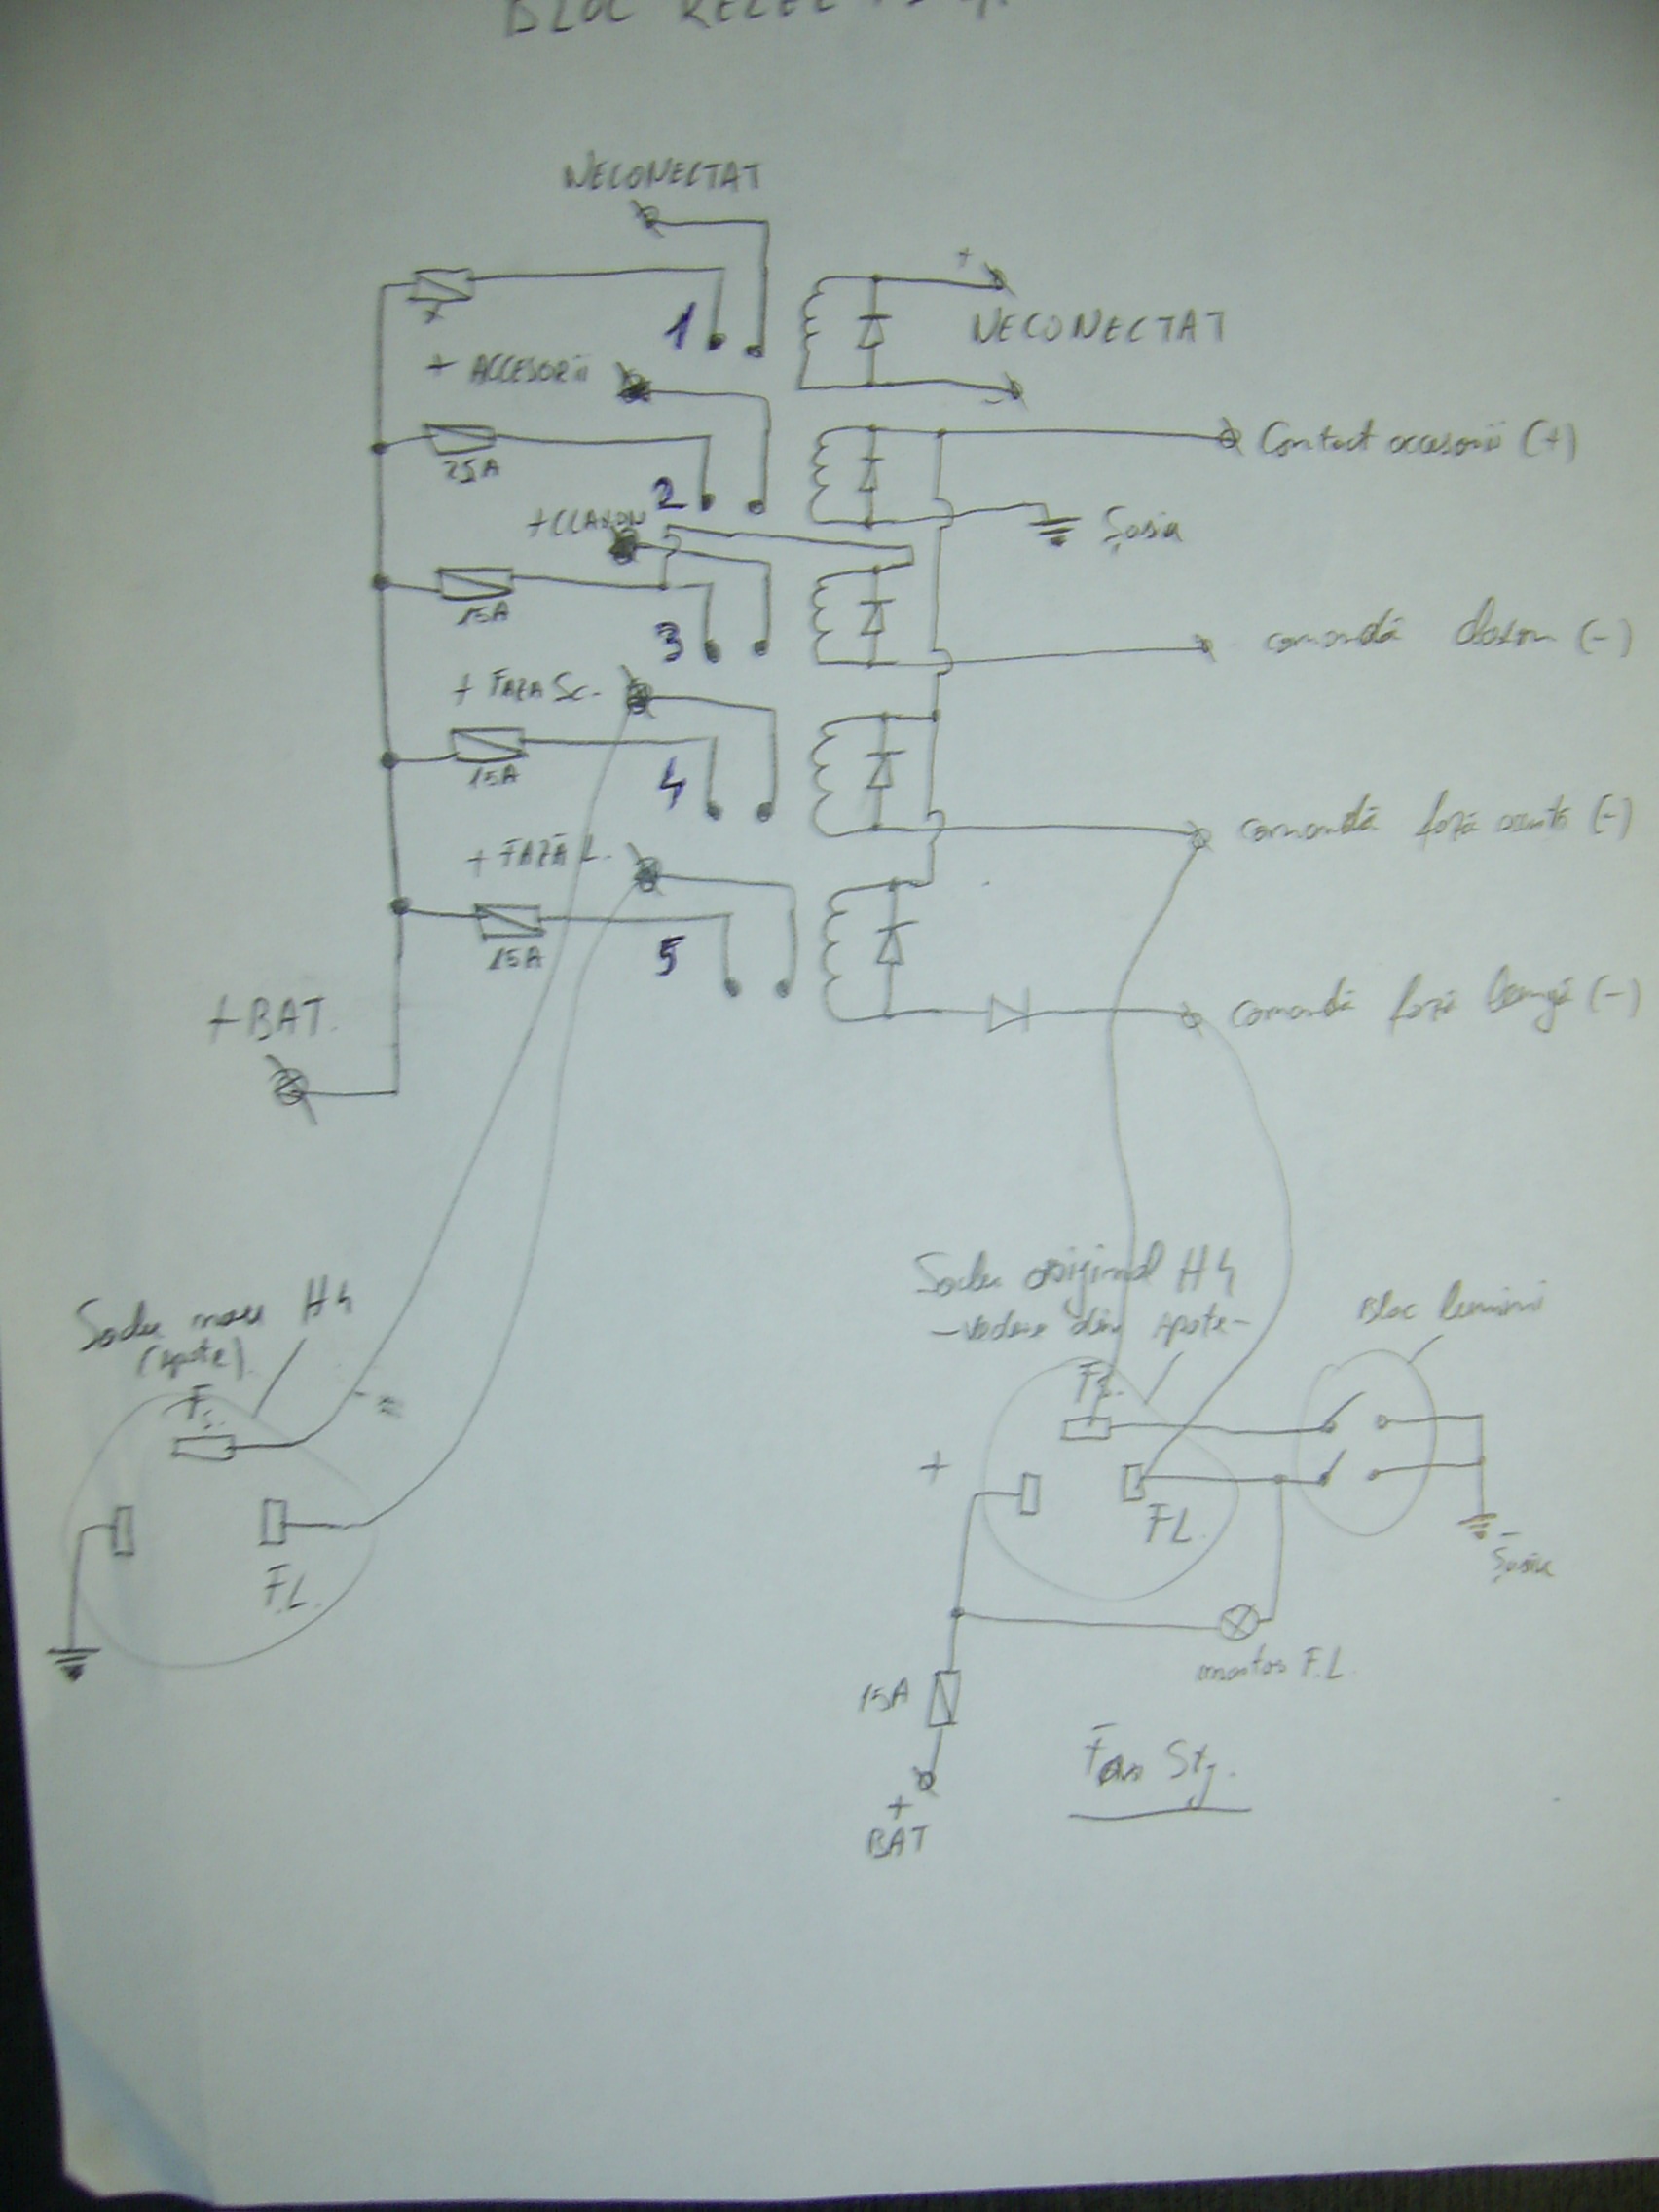 BLOC RELEE
NECONECTAT
+
x
1
NECONECTAT
-
+ ACCESORII
25A
2
Contact accesorii (+)
+CLAXON
Șasiu
15A
3
comandă claxon (-)
+ FAZA Sc.
15A
4
comandă fază scurtă (-)
+ FAZĂ L.
15A
5
comandă fază lungă (-)
+BAT.
Soclu nou H4
(spate)
Fs.
F.L.
Soclu original H4
-vedere din spate-
Bloc lumini
Fs.
+
FL.
-
Șasiu
martor F.L.
15A
+
BAT
Far Stg.